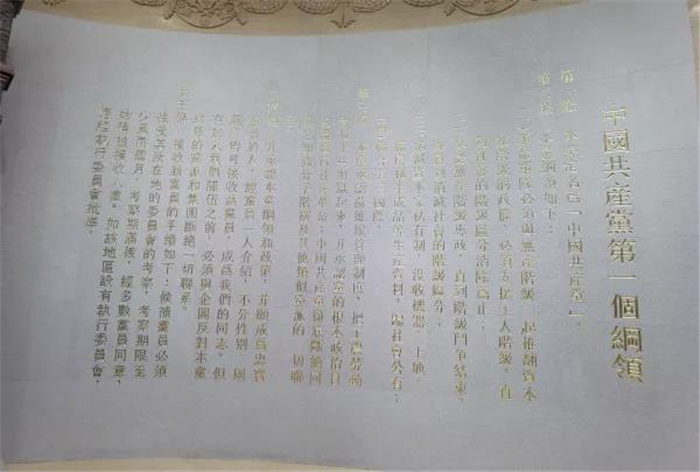 中國共產黨第一個綱領
第一條 本黨定名為「中國共產黨」。
第二條 本黨綱領如下：
(一)革命軍隊必須與無產階級一起推翻資本
家階級的政權，必須支援工人階級，直
到社會的階級區分消除為止；
(二)承認無產階級專政，直到階級鬥爭結束，
即直到消滅社會的階級區分；
(三)消滅資本家私有制，沒收機器、土地、
廠房和半成品等生產資料，歸社會公有；
(四)聯合第三國際。
第三條 本黨承認蘇維埃管理制度，把工農勞動
者和士兵組織起來，並承認黨的根本政治目
的是實行社會革命；中國共產黨徹底斷絕同
黃色知識分子階層及其他類似黨派的一切聯
系。
第四條 凡承認本黨綱領和政策，并願成為忠實
黨員的人，經黨員一人介紹，不分性別、國
籍，均可接收為黨員，成為我們的同志。但
在加入我們隊伍之前，必須與企圖反對本黨
綱領的黨派和集團斷絕一切聯系。
第五條 接收新黨員的手續如下：候補黨員必須
接受其所在地的委員會的考察，考察期限至
少為兩個月。考察期滿後，經多數黨員同意，
始得被接收入黨。如該地區設有執行委員會，
應經執行委員會批準。